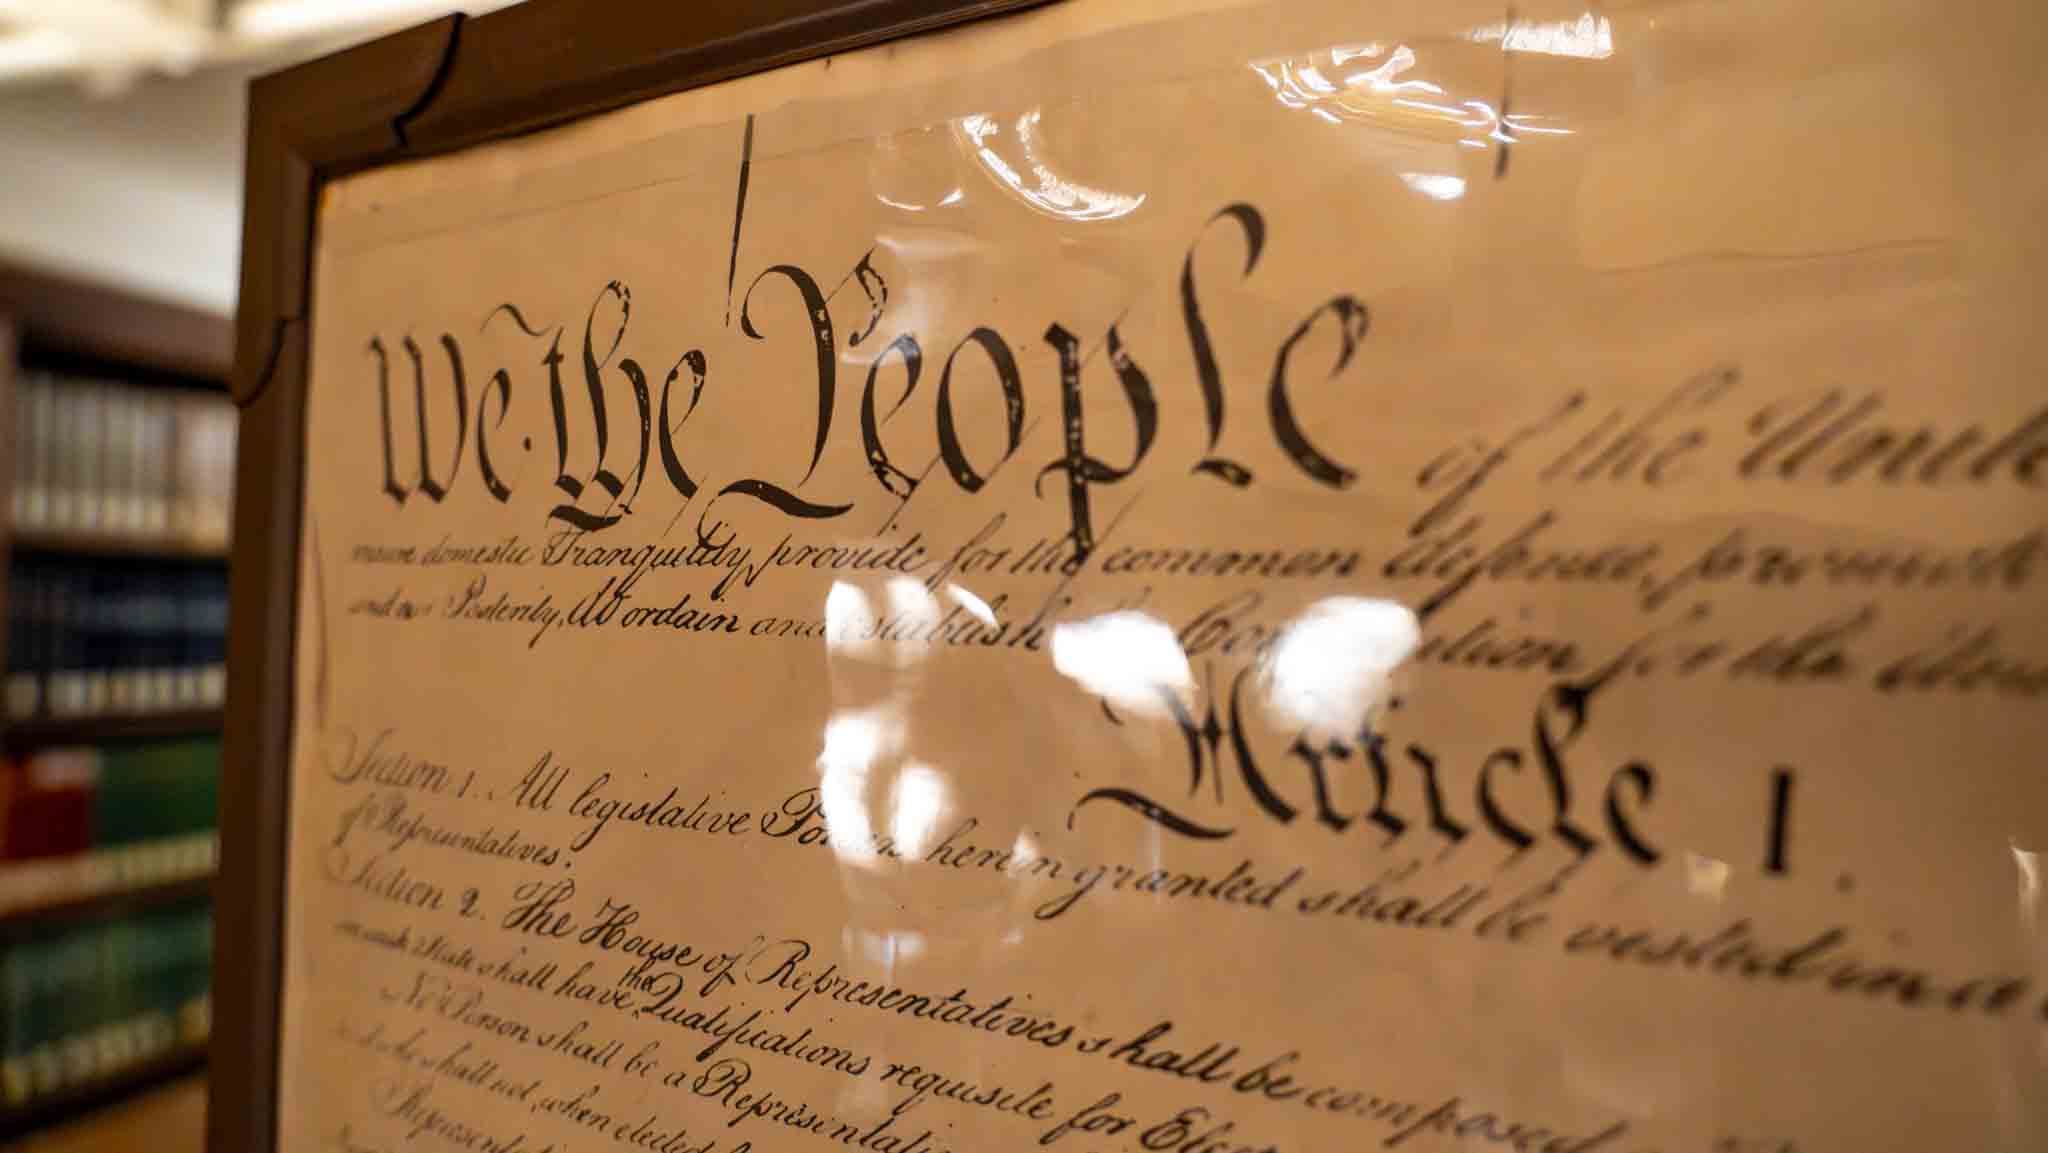 We the People of the Unite
insure domestic Tranquility, provide for the common defence, promote
and our Posterity, do ordain and establish Constitution for the
Article 1.
Section 1. All legislative Powers herein granted shall be vested in a
of Representatives.
Section 2. The House of Representatives shall be composed
in each State shall have the Qualifications requisite for Elect
No Person shall be a Representati
who shall not, when elected
Representati